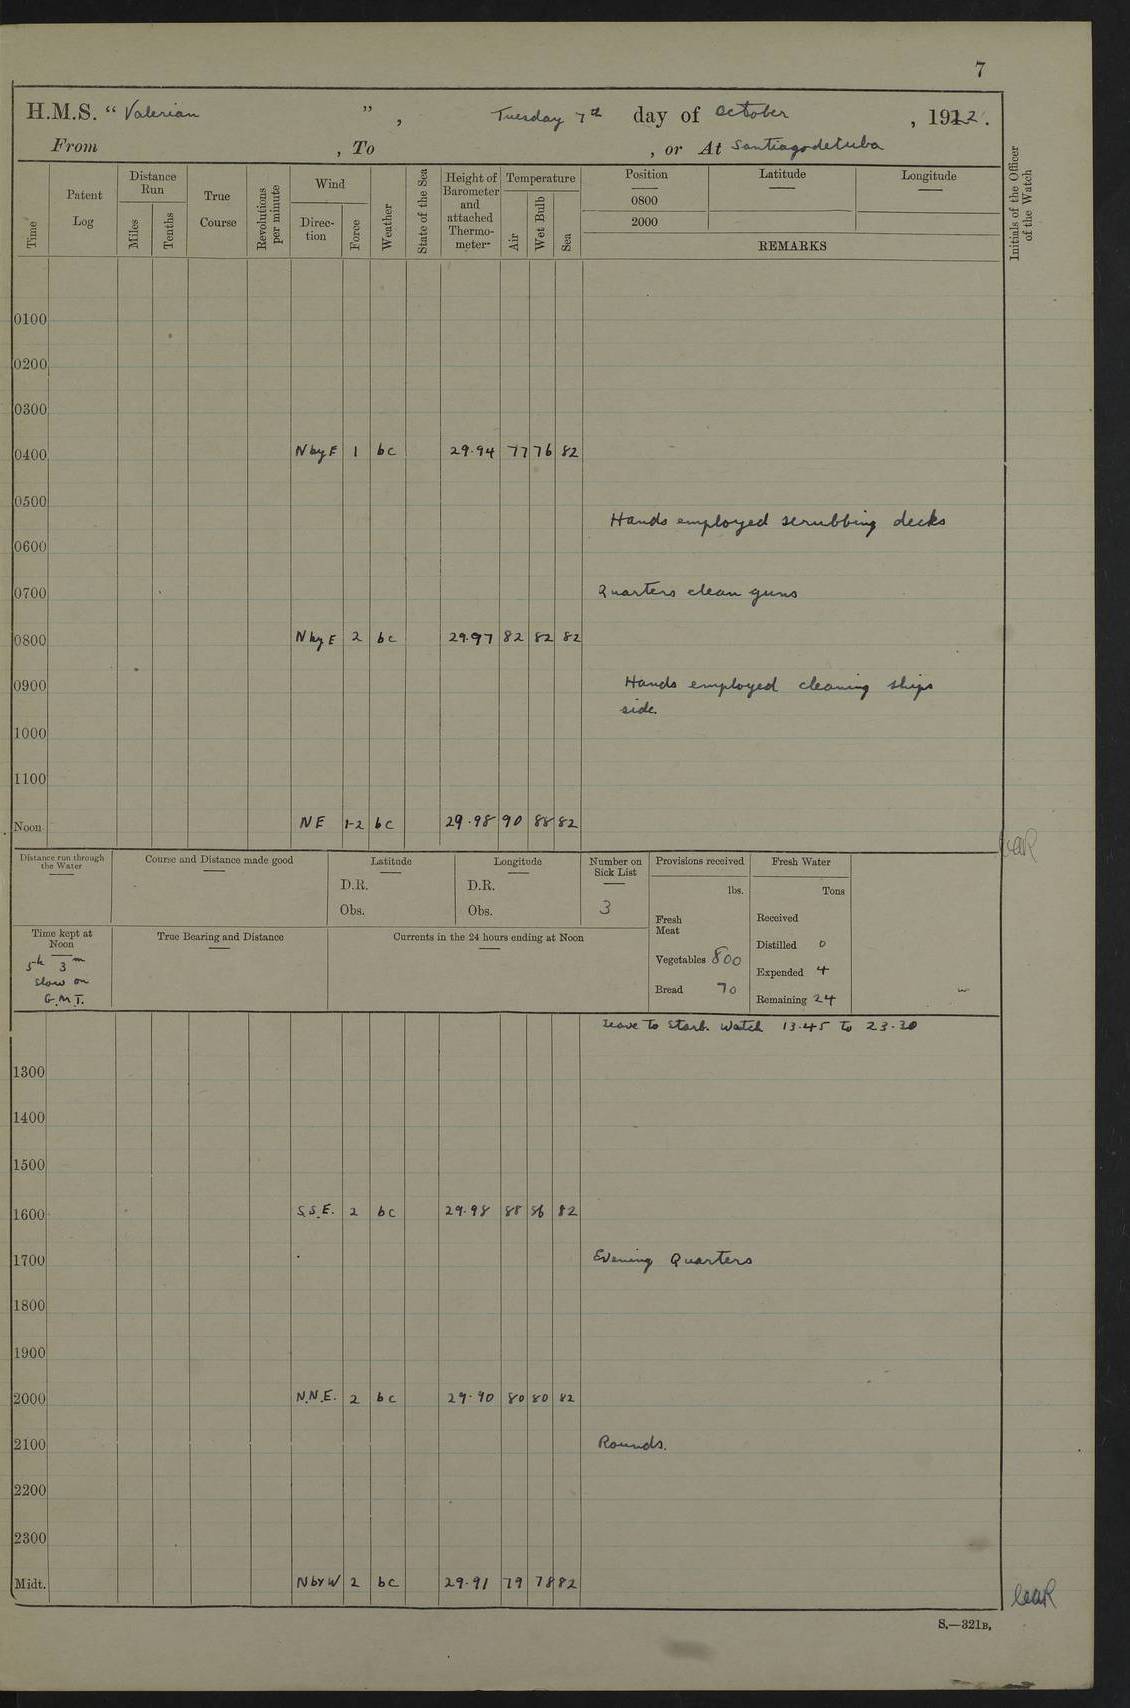 7
H.M.S. "Valerian", Tuesday 7th day of October, 1922.
From , To , or At Santiago de Cuba
Time
Patent Log
Distance Run
Miles
Tenths
True Course
Revolutions per minute
Wind
Direction
Force
Weather
State of the Sea
Height of Barometer and attached Thermometer
Temperature
Air
Wet Bulb
Sea
Position
Latitude
Longitude
0800
2000
REMARKS
Initials of the Officer of the Watch
0100
0200
0300
0400 N by E 1 bc 29.94 77 76 82
0500
Hands employed scrubbing decks
0600
0700 Quarters clean guns
0800 N by E 2 bc 29.97 82 82 82
0900 Hands employed cleaning ships
side.
1000
1100
Noon NE 1-2 bc 29.98 90 88 82
Distance run through the Water
Course and Distance made good
Latitude
D.R.
Obs.
Longitude
D.R.
Obs.
Number on Sick List
3
Provisions received
lbs.
Fresh Meat
Vegetables 800
Bread 70
Fresh Water
Tons
Received
Distilled 0
Expended 4
Remaining 24
Time kept at Noon
5h 3m
slow on
G.M.T.
True Bearing and Distance
Currents in the 24 hours ending at Noon
Leave to Starb. Watch 13.45 to 23.30
1300
1400
1500
1600 S.S.E. 2 bc 29.98 88 86 82
1700 Evening Quarters
1800
1900
2000 N.N.E. 2 bc 29.90 80 80 82
2100 Rounds.
2200
2300
Midt. N by W 2 bc 29.91 79 78 82
S.—321B.